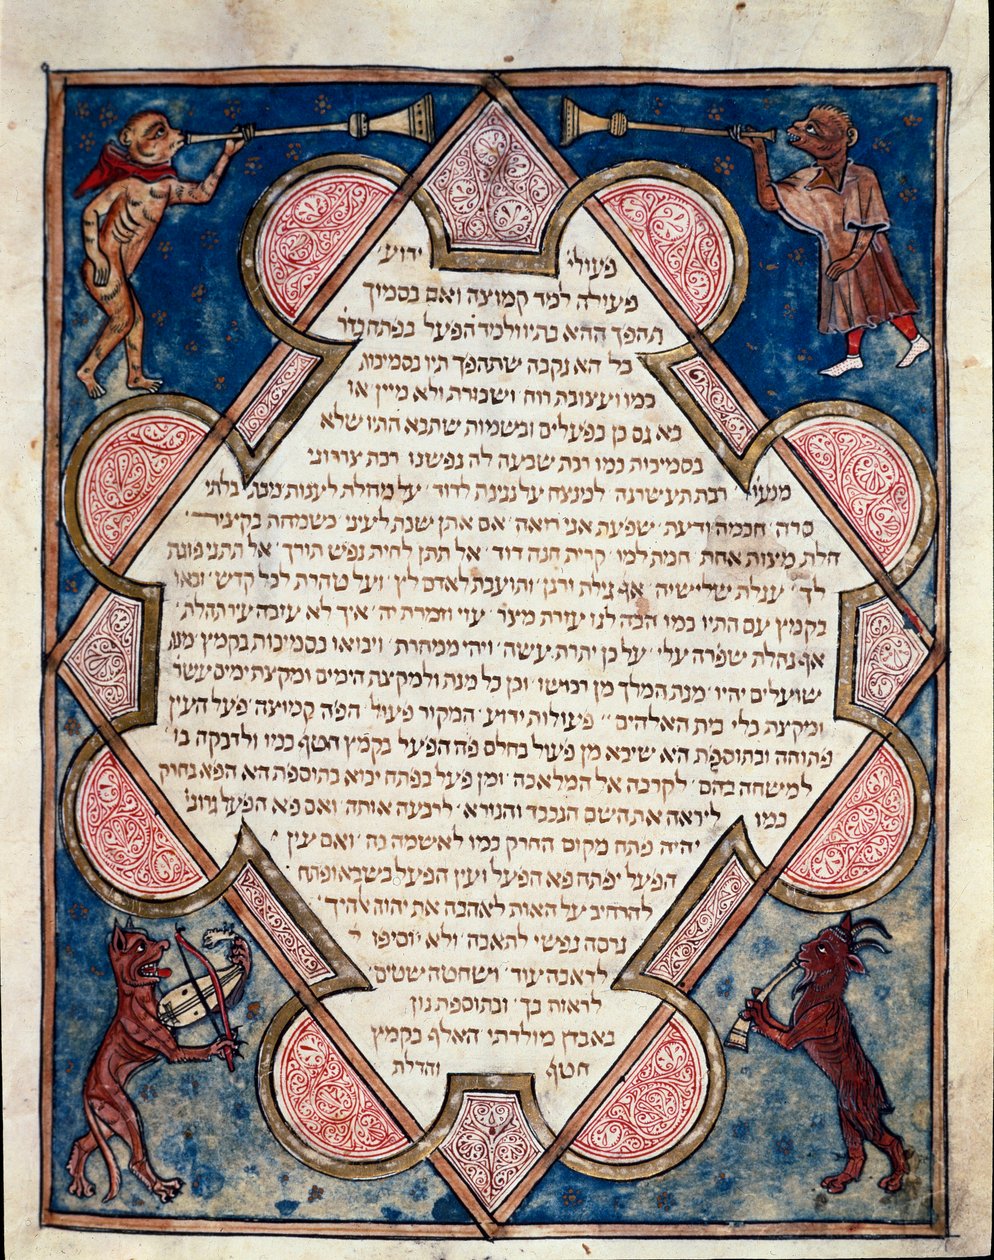 פעולי ידוע
פעולה למד קמוצה ואם בסמיך
תהפך ההא בתיו ולמד הפעל בפתח גדו
כל הא נקבה שתהפך תיו בסמיכות
כמו ועצובת רוח ושכורת ולא מיין או
בא גם כן בפעלים ובשמות שתבא התיו שלא
בסמיכות כמו רבת שבעה לה נפשנו רבת צררוני
מנעורי רבת תעשרנה למנצח על נגינת לדוד על מחלת לענות מכת בלתי
סרה חכמה ודעת שפעת אני רואה אם אתן שנת לעיני כשמחת בקציר
חלת מצות אחת חמת למו קרית חנה דוד אל תתן לחית נפש תורך אל תתני פוגת
לך עגלת שלישיה אף גילת ורנן ותועבת לאדם לץ ועל טהרת לכל קדש ובאו
בקמץ עם התיו כמו הבה לנו עזרת מצר עזי וזמרת יה איך לא עזבה עיר תהלת
אף נחלת שפרה עלי על כן יתרת עשה ויהי ממחרת ויבואו בסמיכות בקמץ מנת
שועלים יהיו מנת המלך מן רכושו וכן כל מנת ולמקצת הימים ומקצת ימים עשר
ומקצת כלי בית האלהים פעולות ידוע המקור פעול הפה קמוצה פעל העין
פתוחה ובתוספת הא שיבא מן פעול בחלם פה הפעל בקמץ חטף כמו ולדבקה בו
למשחה בהם לקרבה אל המלאכה ומן פעל בפתח יבוא בתוספת הא הפא בחירק
כמו ליראה את השם הנכבד והנורא לרבעה אותה ואם פא הפעל גרוני
יהיה פתח מקום החרק כמו לאשמה בה ואם עין
הפעל יפתח פא הפעל ועין הפעל בשבא ופתח
להרחיב על האות לאהבה את יהוה אלהיך
גרסה נפשי לתאבה ולא יוסיפו
לדאבה עוד ושחטה שטים
לראוה בך ובתוספת נון
באבדן מולדתי האלף בקמץ
חטף והדלת